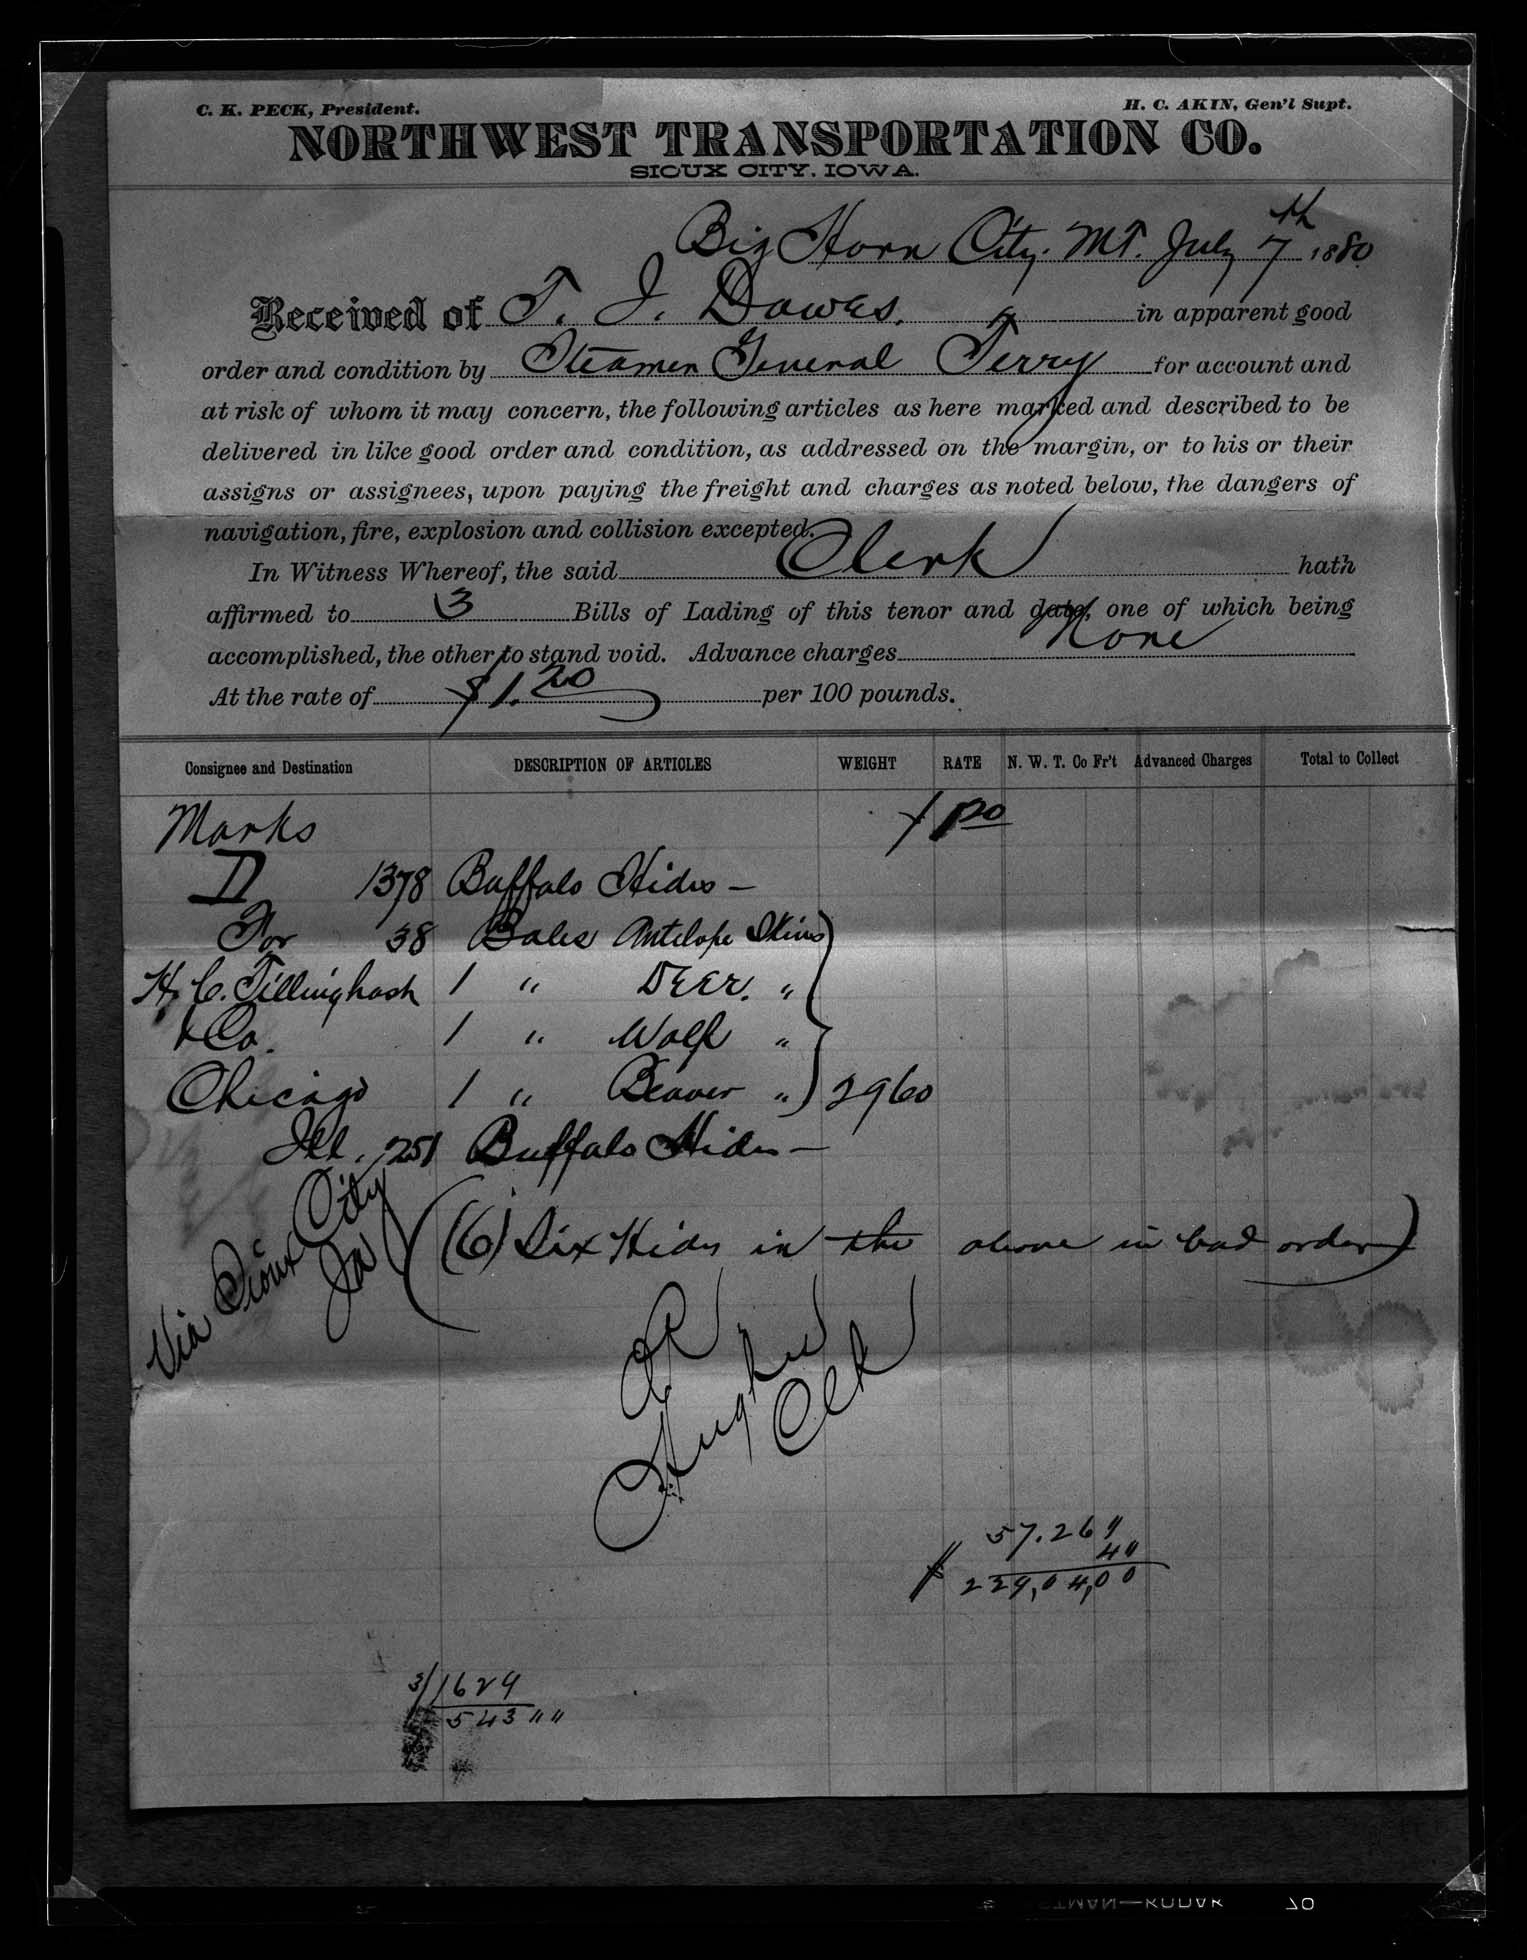 C. K. PECK, President.
H. C. AKIN, Gen'l Supt.
NORTHWEST TRANSPORTATION CO.
SIOUX CITY, IOWA.
Big Horn City. MT. July 7th 1880
Received of T. J. Dawes. in apparent good
order and condition by Steamer General Terry for account and
at risk of whom it may concern, the following articles as here marked and described to be
delivered in like good order and condition, as addressed on the margin, or to his or their
assigns or assignees, upon paying the freight and charges as noted below, the dangers of
navigation, fire, explosion and collision excepted.
In Witness Whereof, the said Clerk hath
affirmed to 3 Bills of Lading of this tenor and date, one of which being
accomplished, the other to stand void. Advance charges None
At the rate of $1.20 per 100 pounds.
Consignee and Destination DESCRIPTION OF ARTICLES WEIGHT RATE N. W. T. Co Fr't Advanced Charges Total to Collect
Marks
D 1378 Buffalo Hides —
For 38 Bales Antelope Skins
H. C. Tillinghast 1 " DEER. "
& Co. 1 " Wolf "
Chicago 1 " Beaver " 2960
Ill. 251 Buffalo Hides —
Via Sioux City
Ia
((6) Six Hides in the above in bad order)
Hughes
Clk
57.26 "
4 "
$ 229,04,00
3/1629
543 " "
70